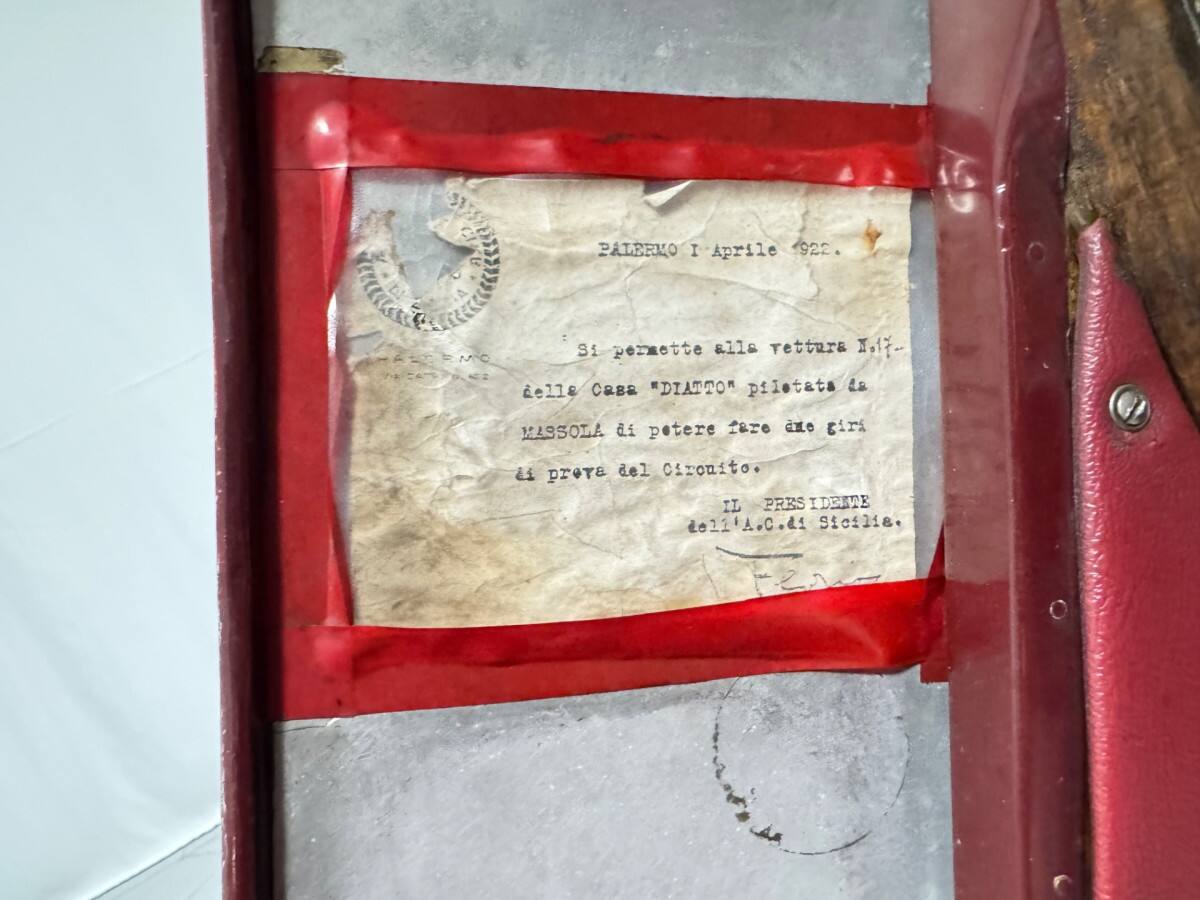 PALERMO I Aprile 922.
PALERMO
Si permette alla vettura N.17-
della Casa "DIATTO" pilotata da
MASSOLA di potere fare due giri
di prova del Circuito.
IL PRESIDENTE
dell'A.C.di Sicilia.
Florio